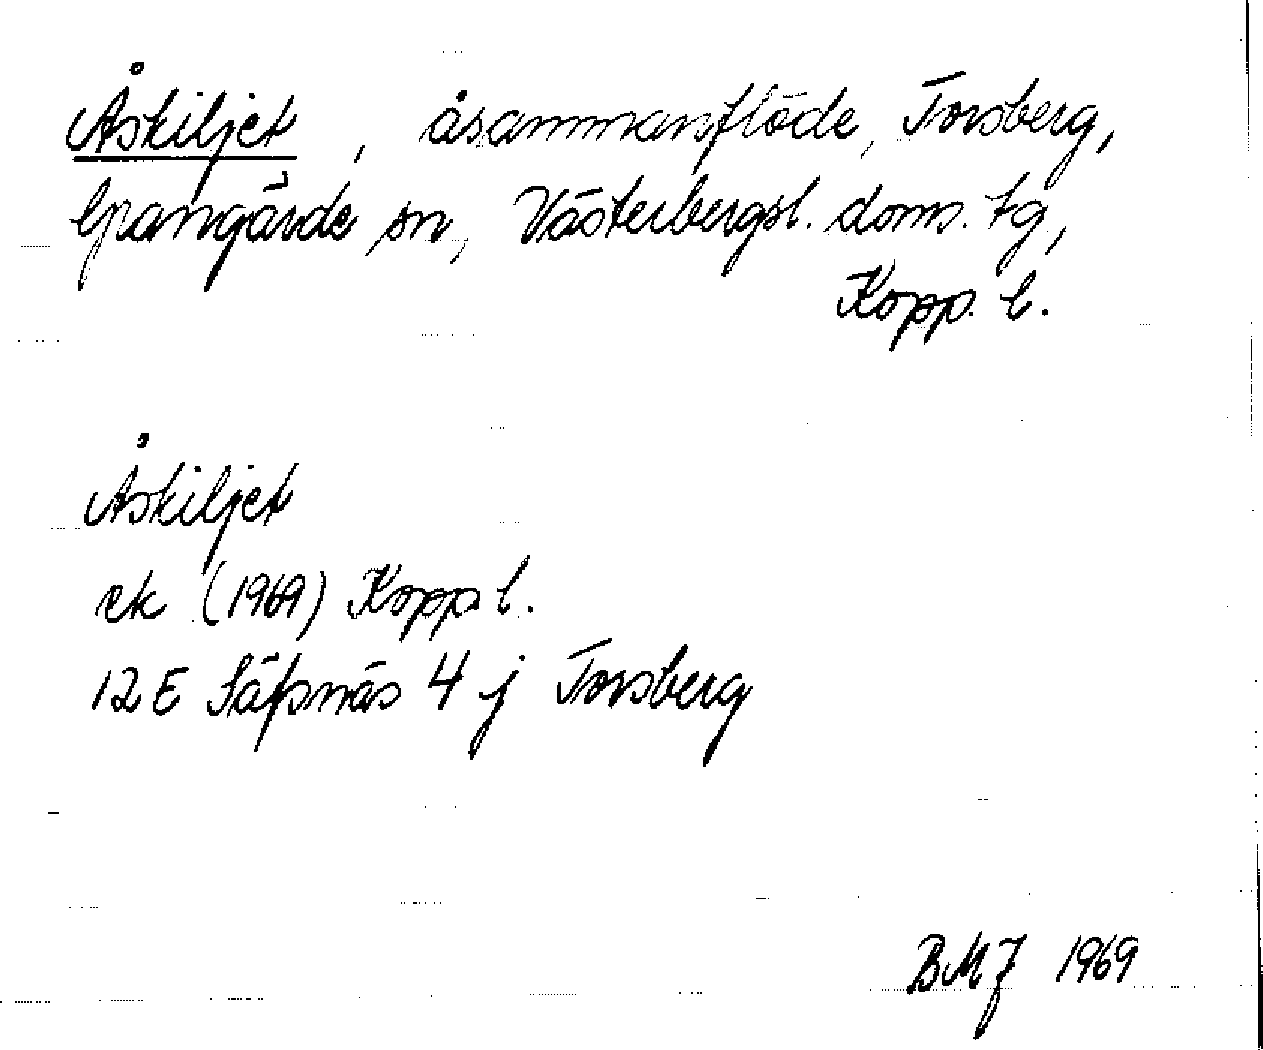 Åskiljet, åsammanflöde, Torsberg,
Grangärde sn, Västerbergsl. doms. tg,
Kopp. l.
Åskiljet
ek (1969) Kopp. l.
12E Säfsnäs 4 j Torsberg
BMJ 1969